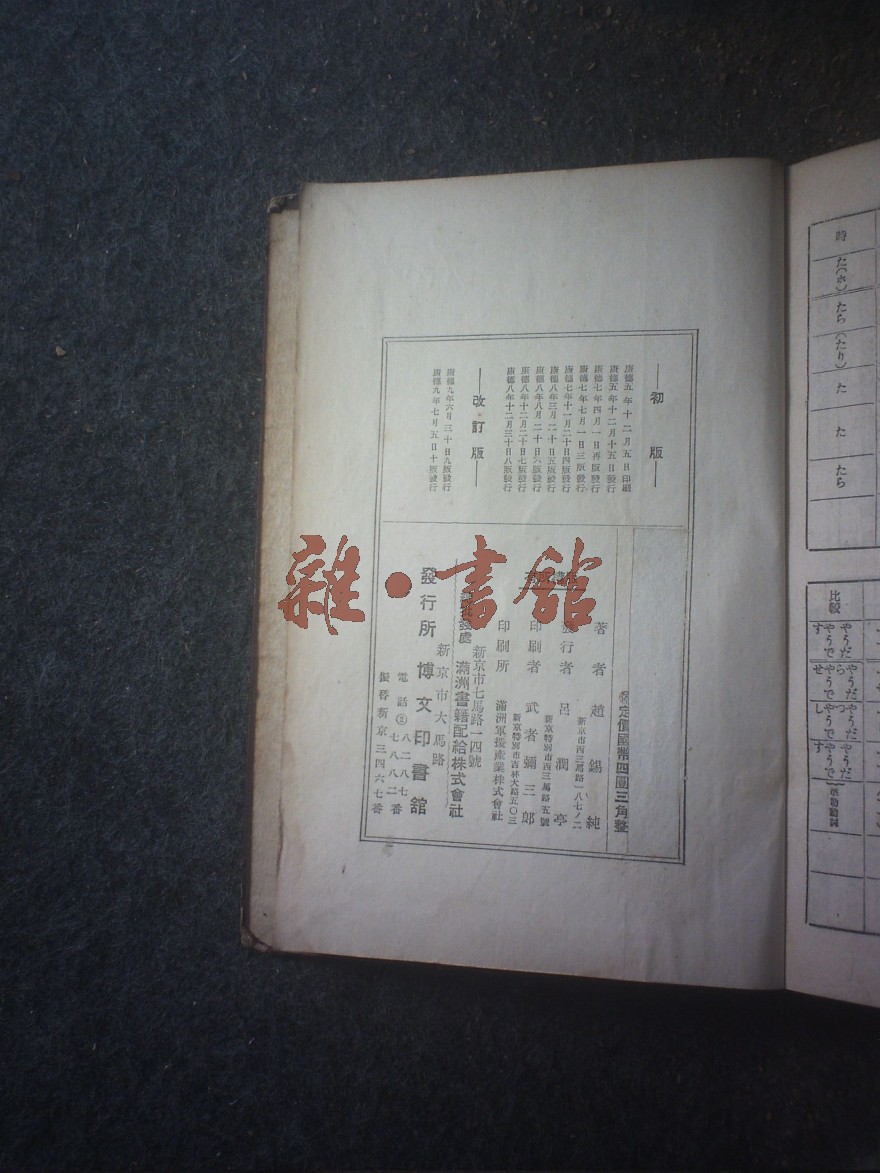 初版
康德五年十二月五日印刷
康德五年十二月十五日發行
康德七年四月一日再版發行
康德七年七月一日三版發行
康德七年十一月二十日四版發行
康德八年三月二十日五版發行
康德八年八月二十日六版發行
康德八年十二月二十日七版發行
康德八年十二月三十日八版發行
改・訂版
康德九年六月三十日九版發行
康德九年七月五日十版發行
定價國幣四圓三角整
著者 趙錫純
新京市西三馬路一八七ノ二
發行者 呂潤亭
新京特別市西三馬路五號
印刷者 武者彌三郎
新京特別市吉林大路五〇三
印刷所 滿洲軍援產業株式會社
新京市七馬路一四號
處 滿洲書籍配給株式會社
新京市大馬路
發行所 博文印書館
電話②八二八七
七八八二番
振替新京三四六七番
雜・書館
時
た(き)
たら
(たり)
た
た
たら
比較
やうだ
やうです
やうだら
やうでせ
やうだつ
やうでし
やうだ
やうです